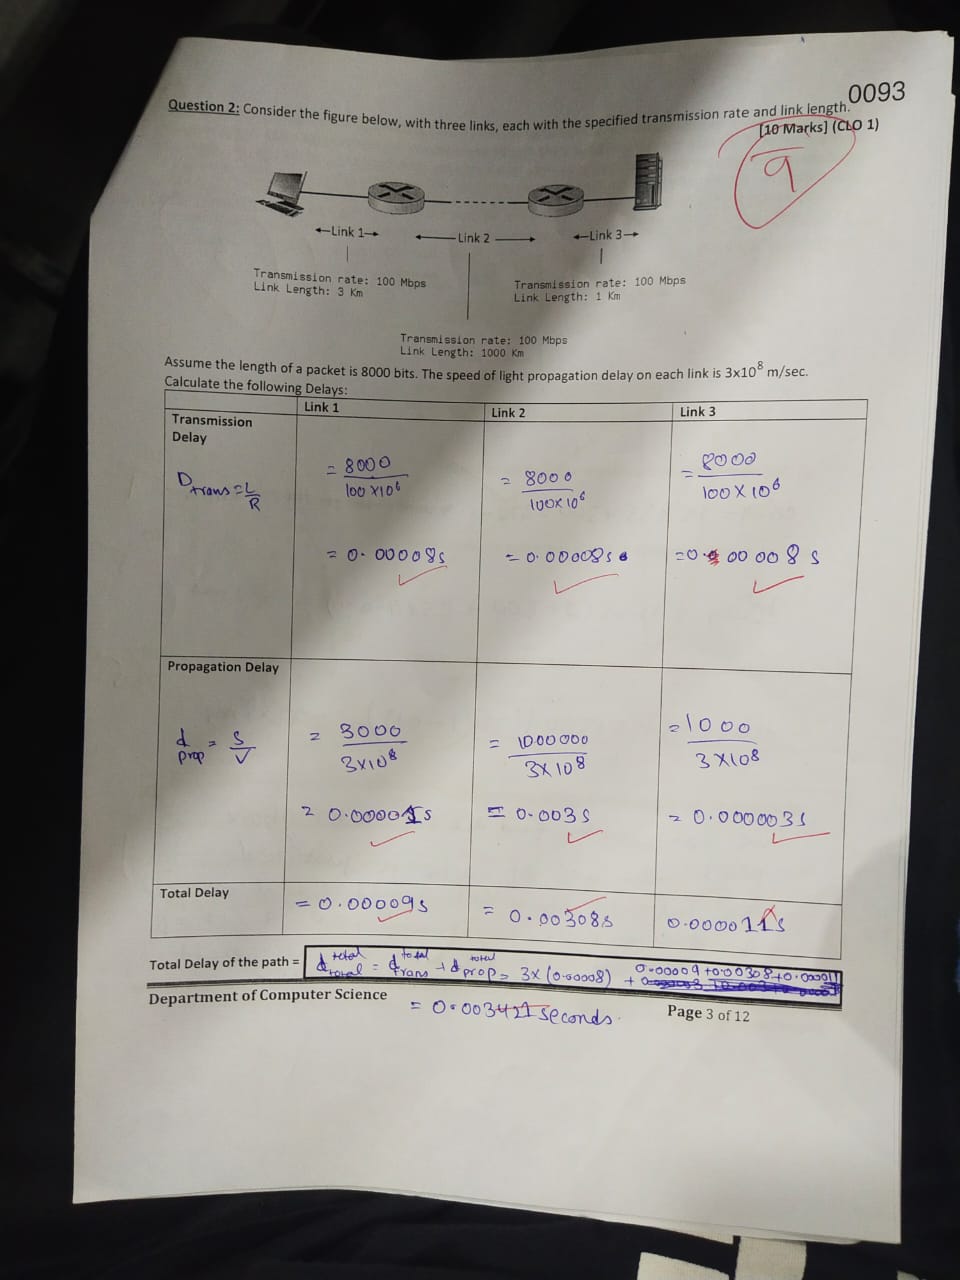 0093
Question 2: Consider the figure below, with three links, each with the specified transmission rate and link length.
[10 Marks] (CLO 1)
9
←Link 1→
←Link 2→
←Link 3→
Transmission rate: 100 Mbps
Link Length: 3 Km
Transmission rate: 100 Mbps
Link Length: 1 Km
Transmission rate: 100 Mbps
Link Length: 1000 Km
Assume the length of a packet is 8000 bits. The speed of light propagation delay on each link is 3x10⁸ m/sec.
Calculate the following Delays:
Link 1 Link 2 Link 3
Transmission
Delay
Dtrans = L/R
= 8000/100×10⁶ = 8000/100×10⁶ = 8000/100×10⁶
= 0.00008s = 0.00008s = 0.00008s
Propagation Delay
dprop = S/V
= 3000/3×10⁸ = 1000000/3×10⁸ = 1000/3×10⁸
= 0.00001s = 0.003s = 0.000003s
Total Delay = 0.00009s = 0.00308s 0.000011s
Total Delay of the path = dtotal total = dtrans total + dprop total = 3×(0.00008) + 0.00009+0.00308+0.00001
= 0.003421 seconds.
Department of Computer Science
Page 3 of 12